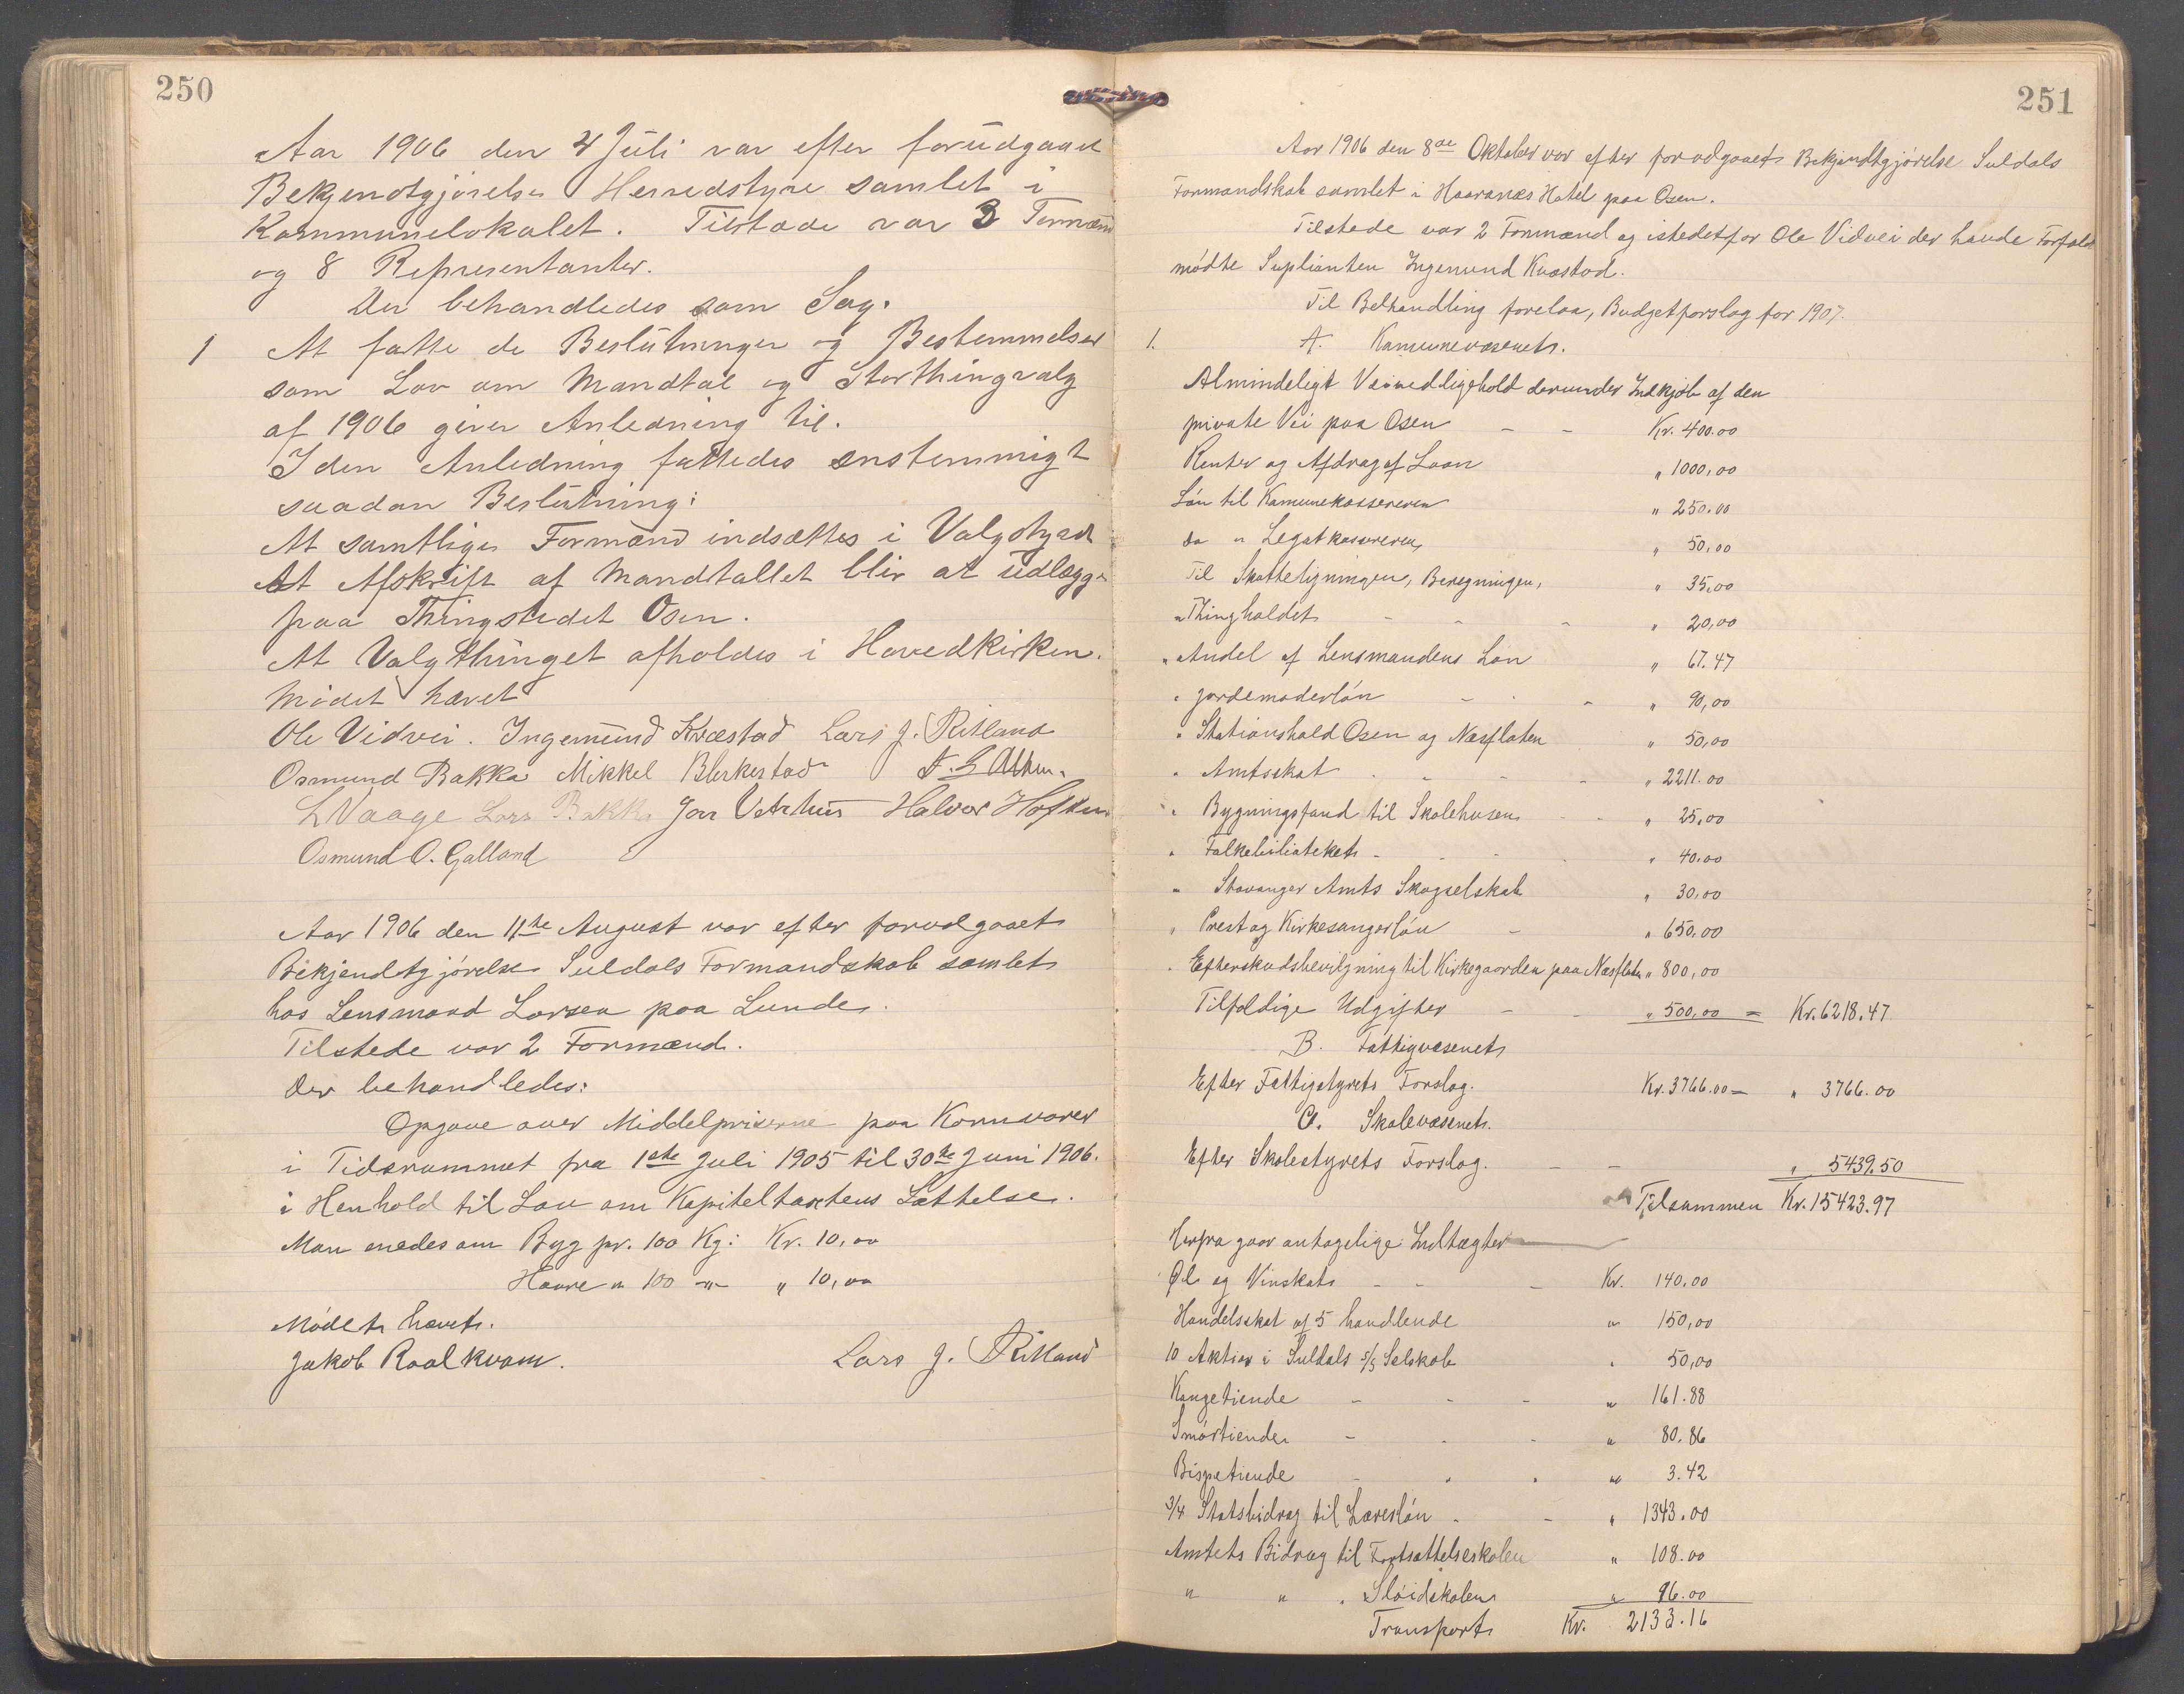 250
Aar 1906 den 4 Juli var efter forudgaaet
Bekjendtgjørelse Herredstyre samlet i
Kommunelokalet. Tilstade var 3 Formænd
og 8 Representanter.
Der behandledes som Sag.
1 At fatte de Beslutninger og Bestemmelser
som Lov om Mandtal og Storthingsvalg
af 1906 giver Anledning til.
I den Anledning fattedes enstemmigt
saadan Beslutning:
At samtlige Formænd indsættes i Valgstyret
At Afskrift af Mandtallet blir at udlægge
paa Thingstedet Osen.
At Valgthinget afholdes i Hovedkirken.
Mødet hævet
Ole Vidvei. Ingemund Kvæstad Lars J. Ritland
Osmund Bakka Mikkel Bleskestad
L Vaage Lars Bakka Jon Vetrhus Halvor Hofsen
Osmund O. Galland
Aar 1906 den 11te August var efter forudgaaet
Bekjendtgjørelse Suldals Formandskab samlet
hos Lensmand Larsen paa Lunde.
Tilstede var 2 Formænd.
Der behandledes:
Opgave over Middelpriserne paa Kornvarer
i Tidsrummet fra 1ste Juli 1905 til 30te Juni 1906.
i Henhold til Lov om Kapiteltaxtens Sættelse.
Man enedes om Byg pr. 100 Kg: Kr. 10,00
Havre " 100 " " 10,00
Mødet hævet.
Jakob Roalkvam. Lars J. Ritland
251
Aar 1906 den 8de Oktober var efter forudgaaet Bekjendtgjørelse Suldals
Formandskab samlet i Haaranæs Hotel paa Osen.
Tilstede var 2 Formænd og istedetfor Ole Vidvei der havde Forfald
mødte Suplianten Ingemund Kvæstad.
Til Behandling forelaa, Budgetforslag for 1907.
1. A. Kamunevæsenet.
Almindeligt Veivedligehold derunder Indkjøb af den
private Vei paa Osen - - Kr. 400.00
Renter og Afdrag af Laan " 1000,00
Løn til Kamunekassereren " 250.00
do " Legatkassereren " 50,00
Til Skatteligningen, Beregningen, " 35,00
" Thingholdet - - - " 20,00
" Andel af Lensmandens Løn " 67.47
" Jordemoderløn - - - " 90,00
" Stationshold Osen og Næsflaten " 50,00
" Amtsskat - - - " 2211.00
" Bygningsfond til Skolehusene - - " 25,00
" Folkebiblioteket - - - " 40.00
" Stavanger Amts Skogselskab " 30,00
" Prest og Kirkesangerløn - " 650,00
" Efterskudsbevilgning til Kirkegaarden paa Næsflaten " 800,00
Tilfældige Udgifter - - " 500,00 = Kr. 6218.47
B. Fattigvæsenet
Efter Fattigstyrets Forslag. Kr. 3766.00 = " 3766.00
C. Skolevæsenet.
Efter Skolestyrets Forslag. - - " 5439.50
Tilsammen Kr. 15423.97
Herfra gaar antagelige Indtægter
Øl og Vinskat - - - Kr. 140.00
Handelsskat af 5 handlende " 150,00
10 Aktier i Suldals s/s Selskab " 50,00
Kongetiende - - - " 161.88
Smørtiende - - - " 80.86
Bispetiende - - - " 3.42
3/4 Statsbidrag til Lærerløn - - " 1343.00
Amtets Bidrag til Fortsættelseskolen " 108.00
" " " Sløidskolen " 96.00
Transport Kr. 2133.16